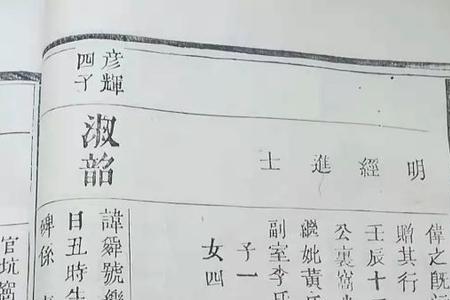 明經進士
偉之旣
贈其行
壬辰十
公裏窩
繼妣黃
副室李氏
子一
女四
彥輝
四子
淑韶
諱舜號樂
日丑時生
碑係
官坑窩